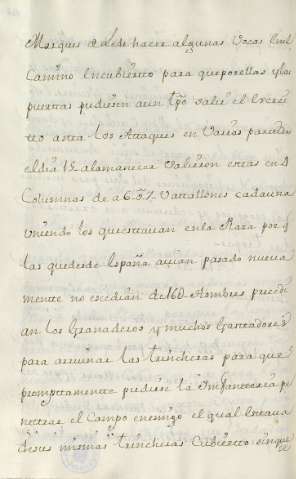 Marques de Lede hacer algunas Vocas en el
Camino Encubierto para que por ellas y las
puertas pudiesen a un tpo salir el Exerci
to a stra los Attaques en Varias partes
el dia 15 al amanecer salieron estas en 4
Columnas de a 6 ó 7 Vattallones cada una
uniendo los que estavan en la Plaza por q
las que desde España avian pasado nueva
mente no excedian de 16d Hombres precedi
an los Granaderos y muchos Gastadores
para arruinar las trincheras para que
promptamente pudiese la Infanteria pe
nettrar el Campo enemigo el qual estava
de sus mismas trincheras Cubierto sin que